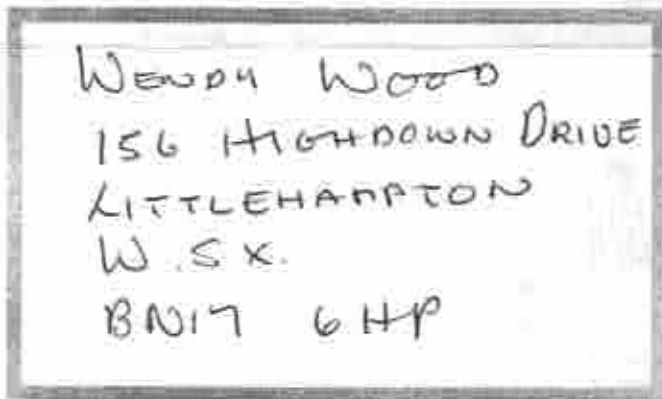 WENDY WOOD
156 HIGHDOWN DRIVE
LITTLEHAMPTON
W.SX.
BN17 6HP